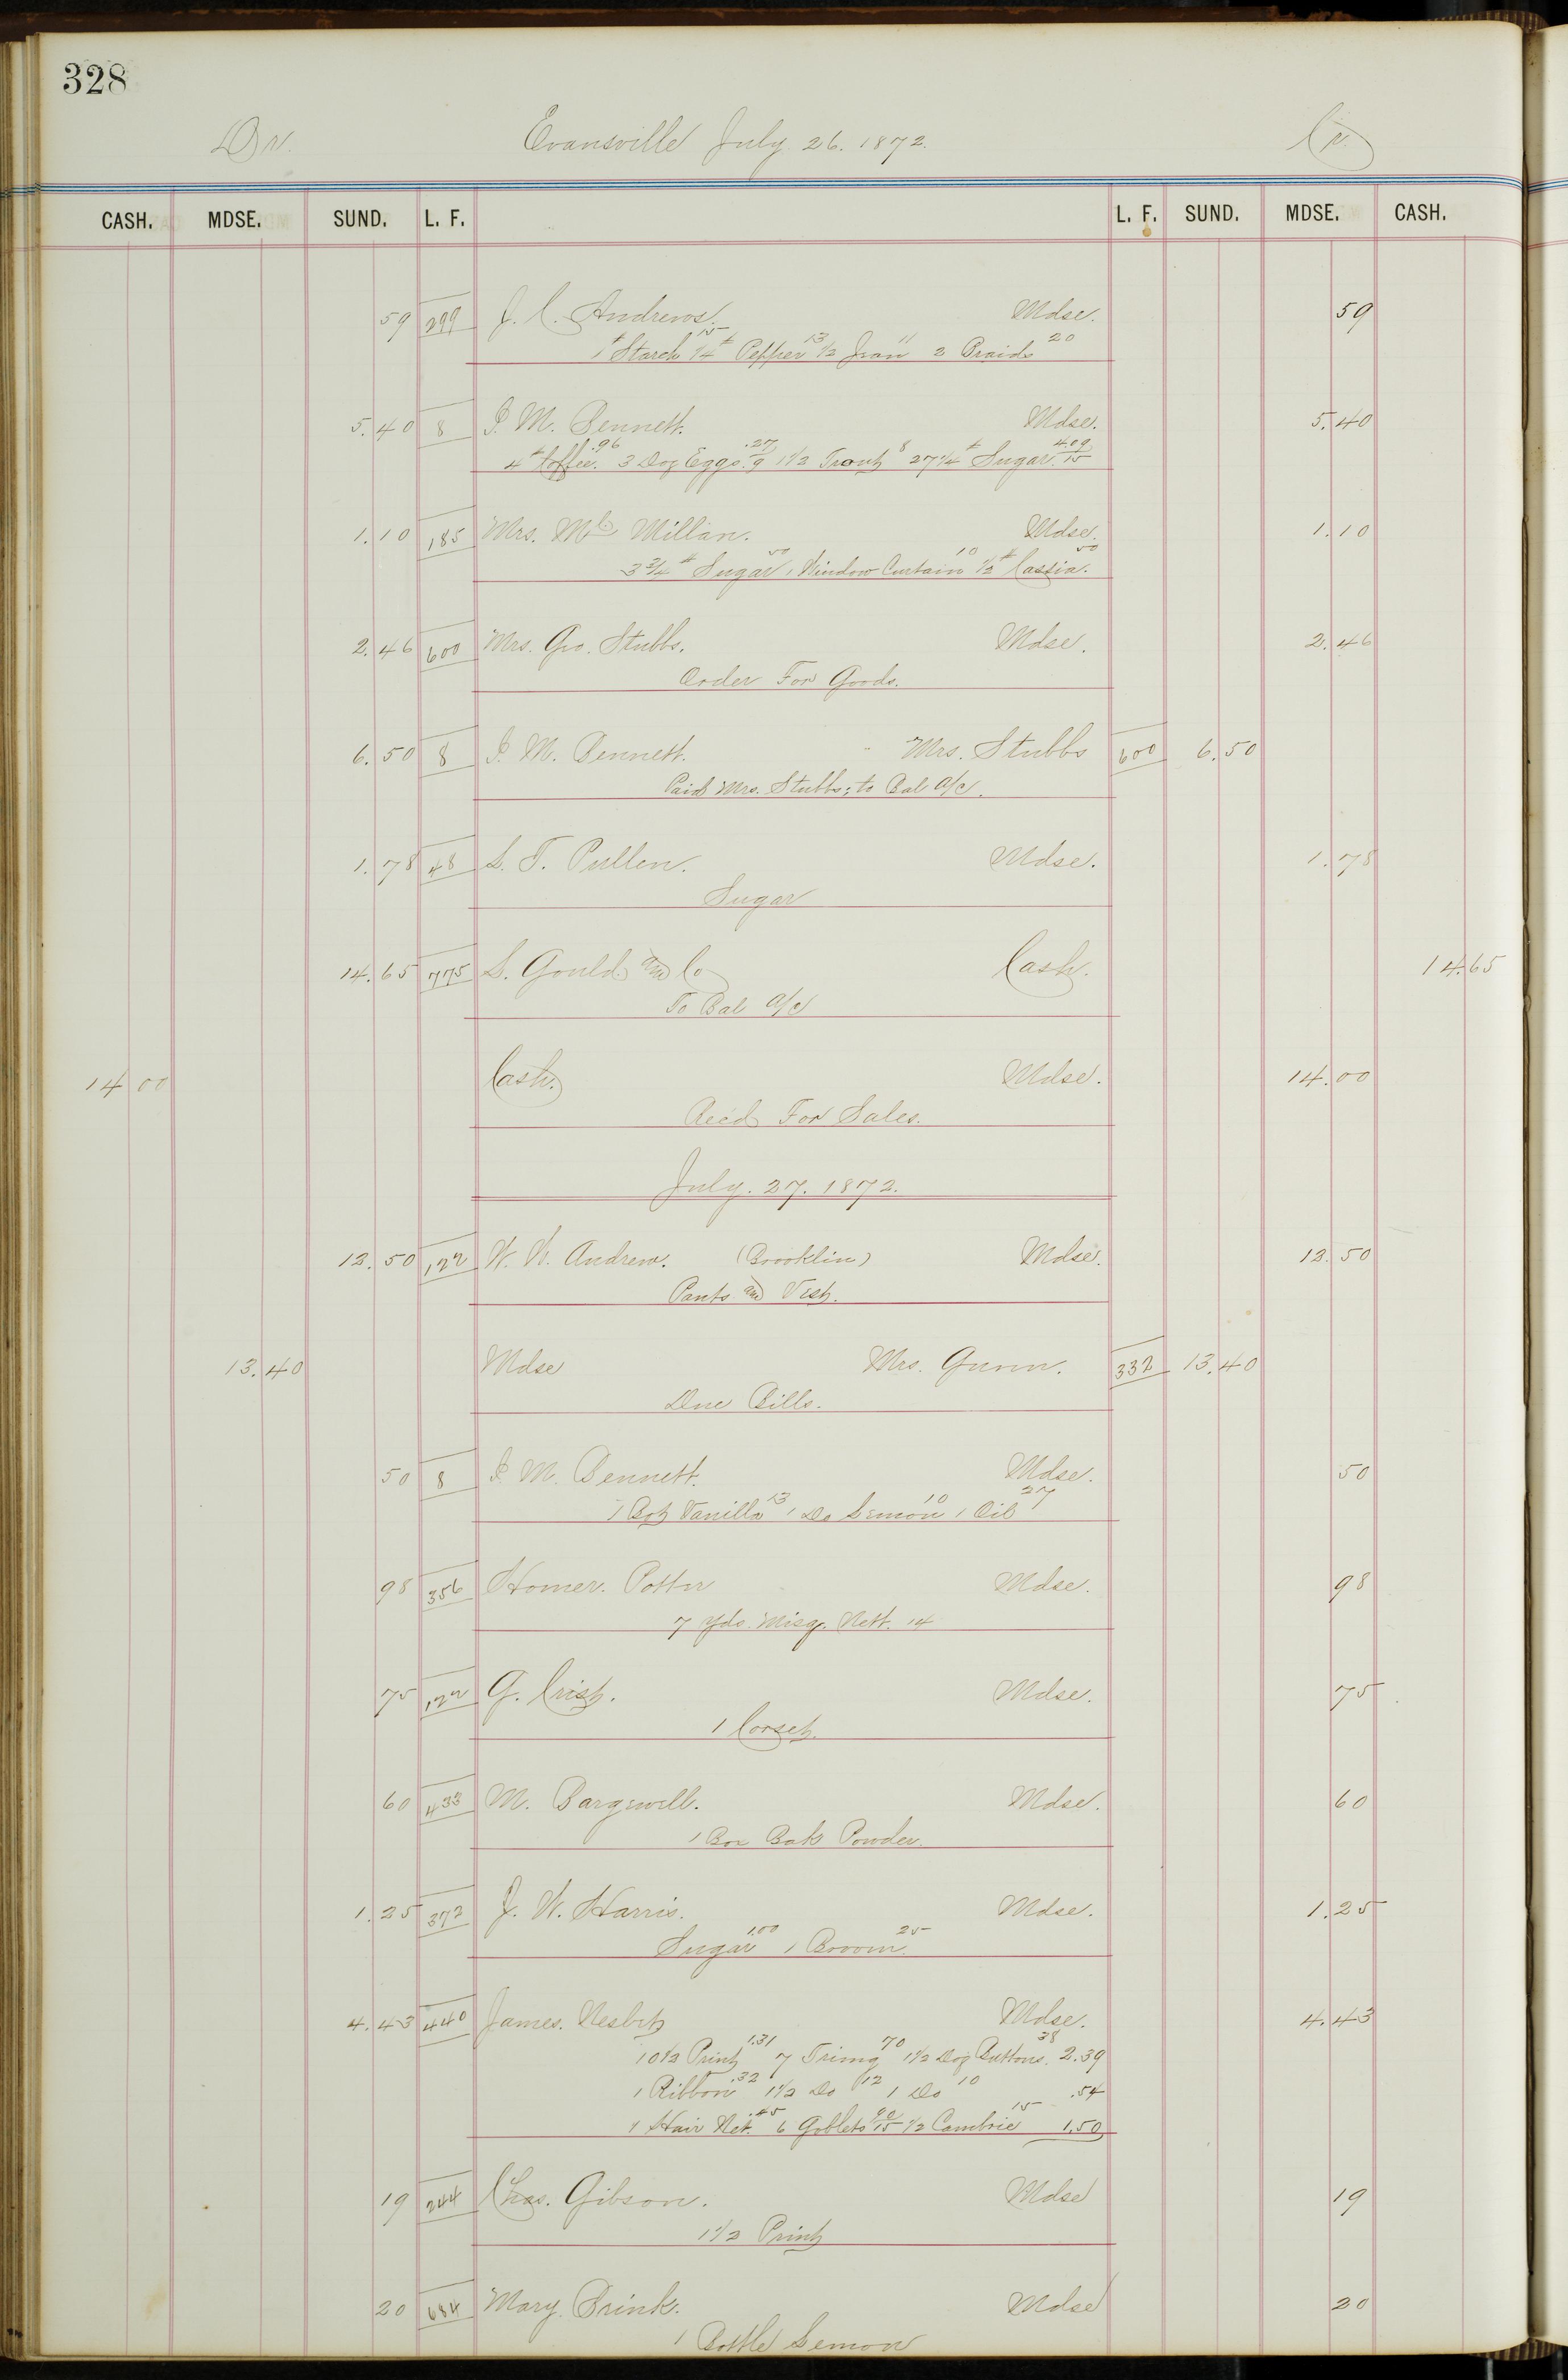 328
Dr. Evansville July 26. 1872. Cr.
CASH. MDSE. SUND. L. F. L. F. SUND. MDSE. CASH.
59 299 J. C. Andrews. Mdse. 59
1# Starch 15 1/4# Pepper 13 1/2 Jean 11 2 Braids 20
5.40 8 I. M. Bennett. Mdse. 5.40
4# Coffee. .96 3 Doz Eggs. .27/9 1 1/2 Trout 8 27 1/4# Sugar. 4.09/15
1.10 185 Mrs. Mc Millan. Mdse. 1.10
3 3/4# Sugar 50 1 Window Curtain 10 1/2# Cassia. 50
2.46 600 Mrs. Geo. Stubbs. Mdse. 2.46
Order For Goods.
6.50 8 I. M. Bennett. Mrs. Stubbs 600 6.50
Paid Mrs. Stubbs; to Bal a/c.
1.78 48 L. T. Pullen. Mdse. 1.78
Sugar
14.65 775 S. Gould and Co Cash. 14.65
To Bal a/c
14 00 Cash. Mdse. 14.00
Recd For Sales.
July. 27. 1872.
12.50 122 W. W. Andrew. (Brooklin) Mdse. 12.50
Pants and Vest.
13.40 Mdse Mrs. Gunn. 332 13.40
Due Bills.
50 8 I. M. Bennett. Mdse. 50
1 Bot Vanilla 13 1 Do Lemon 10 1 Oil 27
98 356 Homer. Potter Mdse. 98
7 Yds. Misq. Nett. 14
75 122 G. Crist. Mdse. 75
1 Corset.
60 433 M. Bargewell. Mdse. 60
1 Box Bak Powder.
1.25 372 J. W. Harris. Mdse. 1.25
Sugar 1.00 1 Broom. 25
4.43 440 James. Nesbit Mdse. 4.43
10 1/2 Print 1.31 7 Trimg 70 1 1/2 Doz Buttons. 38 2.39
1 Ribbon .32 1 1/2 Do 12 1 Do 10 .54
1 Hair Net. .45 6 Goblets 90/15 1/2 Cambric 15 1.50
19 244 Chas. Gibson. Mdse 19
1 1/2 Print
20 684 Mary. Brink. Mdse 20
1 Bottle Lemon